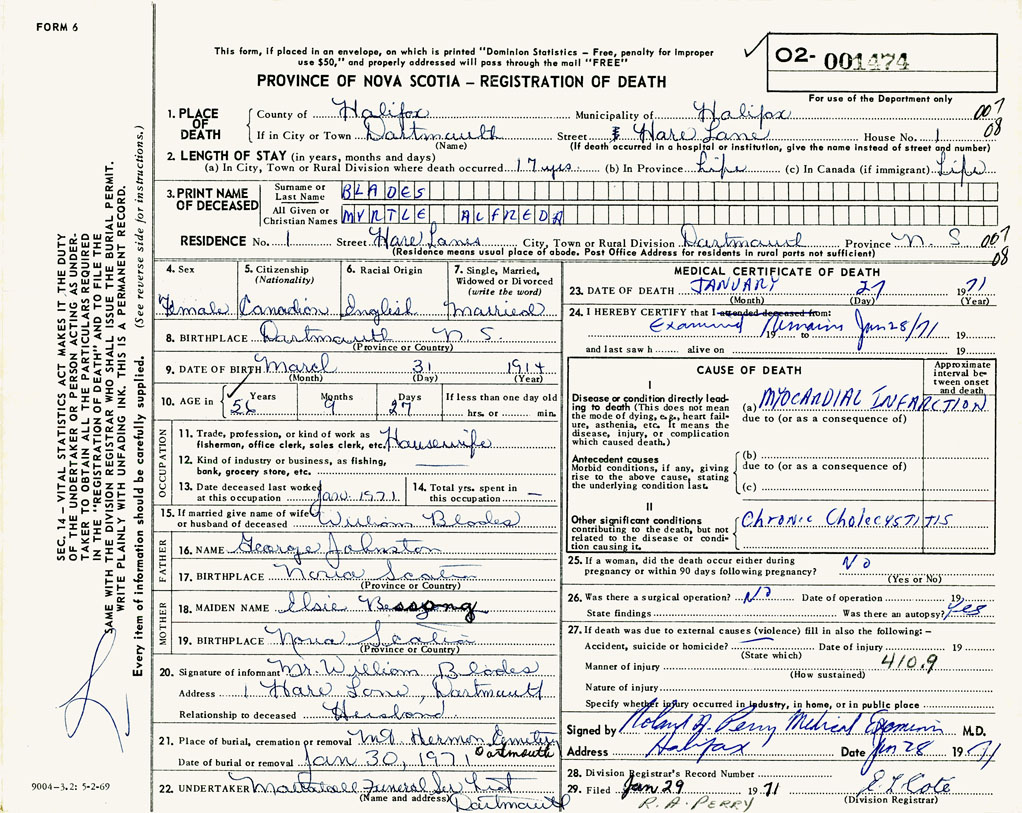 FORM 6
This form, if placed in an envelope, on which is printed "Dominion Statistics – Free, penalty for improper
use $50," and properly addressed will pass through the mail "FREE"
PROVINCE OF NOVA SCOTIA – REGISTRATION OF DEATH
O2- 001474
For use of the Department only
1. PLACE OF DEATH { County of Halifax Municipality of Halifax 007
If in City or Town Dartmouth Street Hare Lane House No. 1 08
(Name) (If death occurred in a hospital or institution, give the name instead of street and number)
2. LENGTH OF STAY (in years, months and days)
(a) In City, Town or Rural Division where death occurred 17 yrs. (b) In Province Life (c) In Canada (if immigrant) Life
3. PRINT NAME OF DECEASED { Surname or Last Name BLADES
All Given or Christian Names MYRTLE ALFREDA
RESIDENCE No. 1 Street Hare Lane City, Town or Rural Division Dartmouth Province N. S 007
(Residence means usual place of abode. Post Office Address for residents in rural ports not sufficient) 08
4. Sex Female
5. Citizenship (Nationality) Canadian
6. Racial Origin English
7. Single, Married, Widowed or Divorced (write the word) Married
8. BIRTHPLACE Dartmouth N. S.
(Province or Country)
9. DATE OF BIRTH March 31 1914
(Month) (Day) (Year)
10. AGE in { Years 56 Months 9 Days 27 If less than one day old
hrs. or min.
OCCUPATION
11. Trade, profession, or kind of work as
fisherman, office clerk, sales clerk, etc. Housewife
12. Kind of industry or business, as fishing,
bank, grocery store, etc. —
13. Date deceased last worked
at this occupation Jan. 1971.
14. Total yrs. spent in
this occupation –
15. If married give name of wife
or husband of deceased William Blades
FATHER
16. NAME George Johnston
17. BIRTHPLACE Nova Scotia
(Province or Country)
MOTHER
18. MAIDEN NAME Elsie Bessong
19. BIRTHPLACE Nova Scotia
(Province or Country)
20. Signature of informant Mr. William Blades
Address 1 Hare Lane, Dartmouth
Relationship to deceased Husband
21. Place of burial, cremation or removal Mt Hermon Cemetery
Dartmouth
Date of burial or removal Jan 30, 1971
22. UNDERTAKER Funeral Ser
(Name and address) Dartmouth
MEDICAL CERTIFICATE OF DEATH
23. DATE OF DEATH JANUARY 27 1971
(Month) (Day) (Year)
24. I HEREBY CERTIFY that I attended deceased from:
Examined Remains Jan 28/71 19 to 19
and last saw h alive on 19
CAUSE OF DEATH
Approximate interval between onset and death
I
Disease or condition directly leading to death (This does not mean the mode of dying, e.g., heart failure, asthenia, etc. It means the disease, injury, or complication which caused death.)
(a) MYOCARDIAL INFARCTION
due to (or as a consequence of)
Antecedent causes
Morbid conditions, if any, giving rise to the above cause, stating the underlying condition last.
(b)
due to (or as a consequence of)
(c)
II
Other significant conditions
contributing to the death, but not related to the disease or condition causing it.
Chronic Cholecystitis
25. If a woman, did the death occur either during
pregnancy or within 90 days following pregnancy? NO
(Yes or No)
26. Was there a surgical operation? NO Date of operation 19
State findings Was there an autopsy? Yes
27. If death was due to external causes (violence) fill in also the following: –
Accident, suicide or homicide? — Date of injury 19
(State which)
Manner of injury 410.9
(How sustained)
Nature of injury
Specify whether injury occurred in industry, in home, or in public place
Signed by Roland A. Perry Medical Examiner M.D.
Address Halifax Date Jan 28 1971
28. Division Registrar's Record Number
29. Filed Jan 29 1971 Cote
(Division Registrar)
R. A. PERRY
SEC. 14 – VITAL STATISTICS ACT MAKES IT THE DUTY
OF THE UNDERTAKER OR PERSON ACTING AS UNDER-
TAKER TO OBTAIN ALL THE PARTICULARS REQUIRED
IN THE "REGISTRATION OF DEATH" AND TO FILE THE
SAME WITH THE DIVISION REGISTRAR WHO SHALL ISSUE THE BURIAL PERMIT.
WRITE PLAINLY WITH UNFADING INK. THIS IS A PERMANENT RECORD.
Every item of information should be carefully supplied. (See reverse side for instructions.)
9004-3.2: 5-2-69